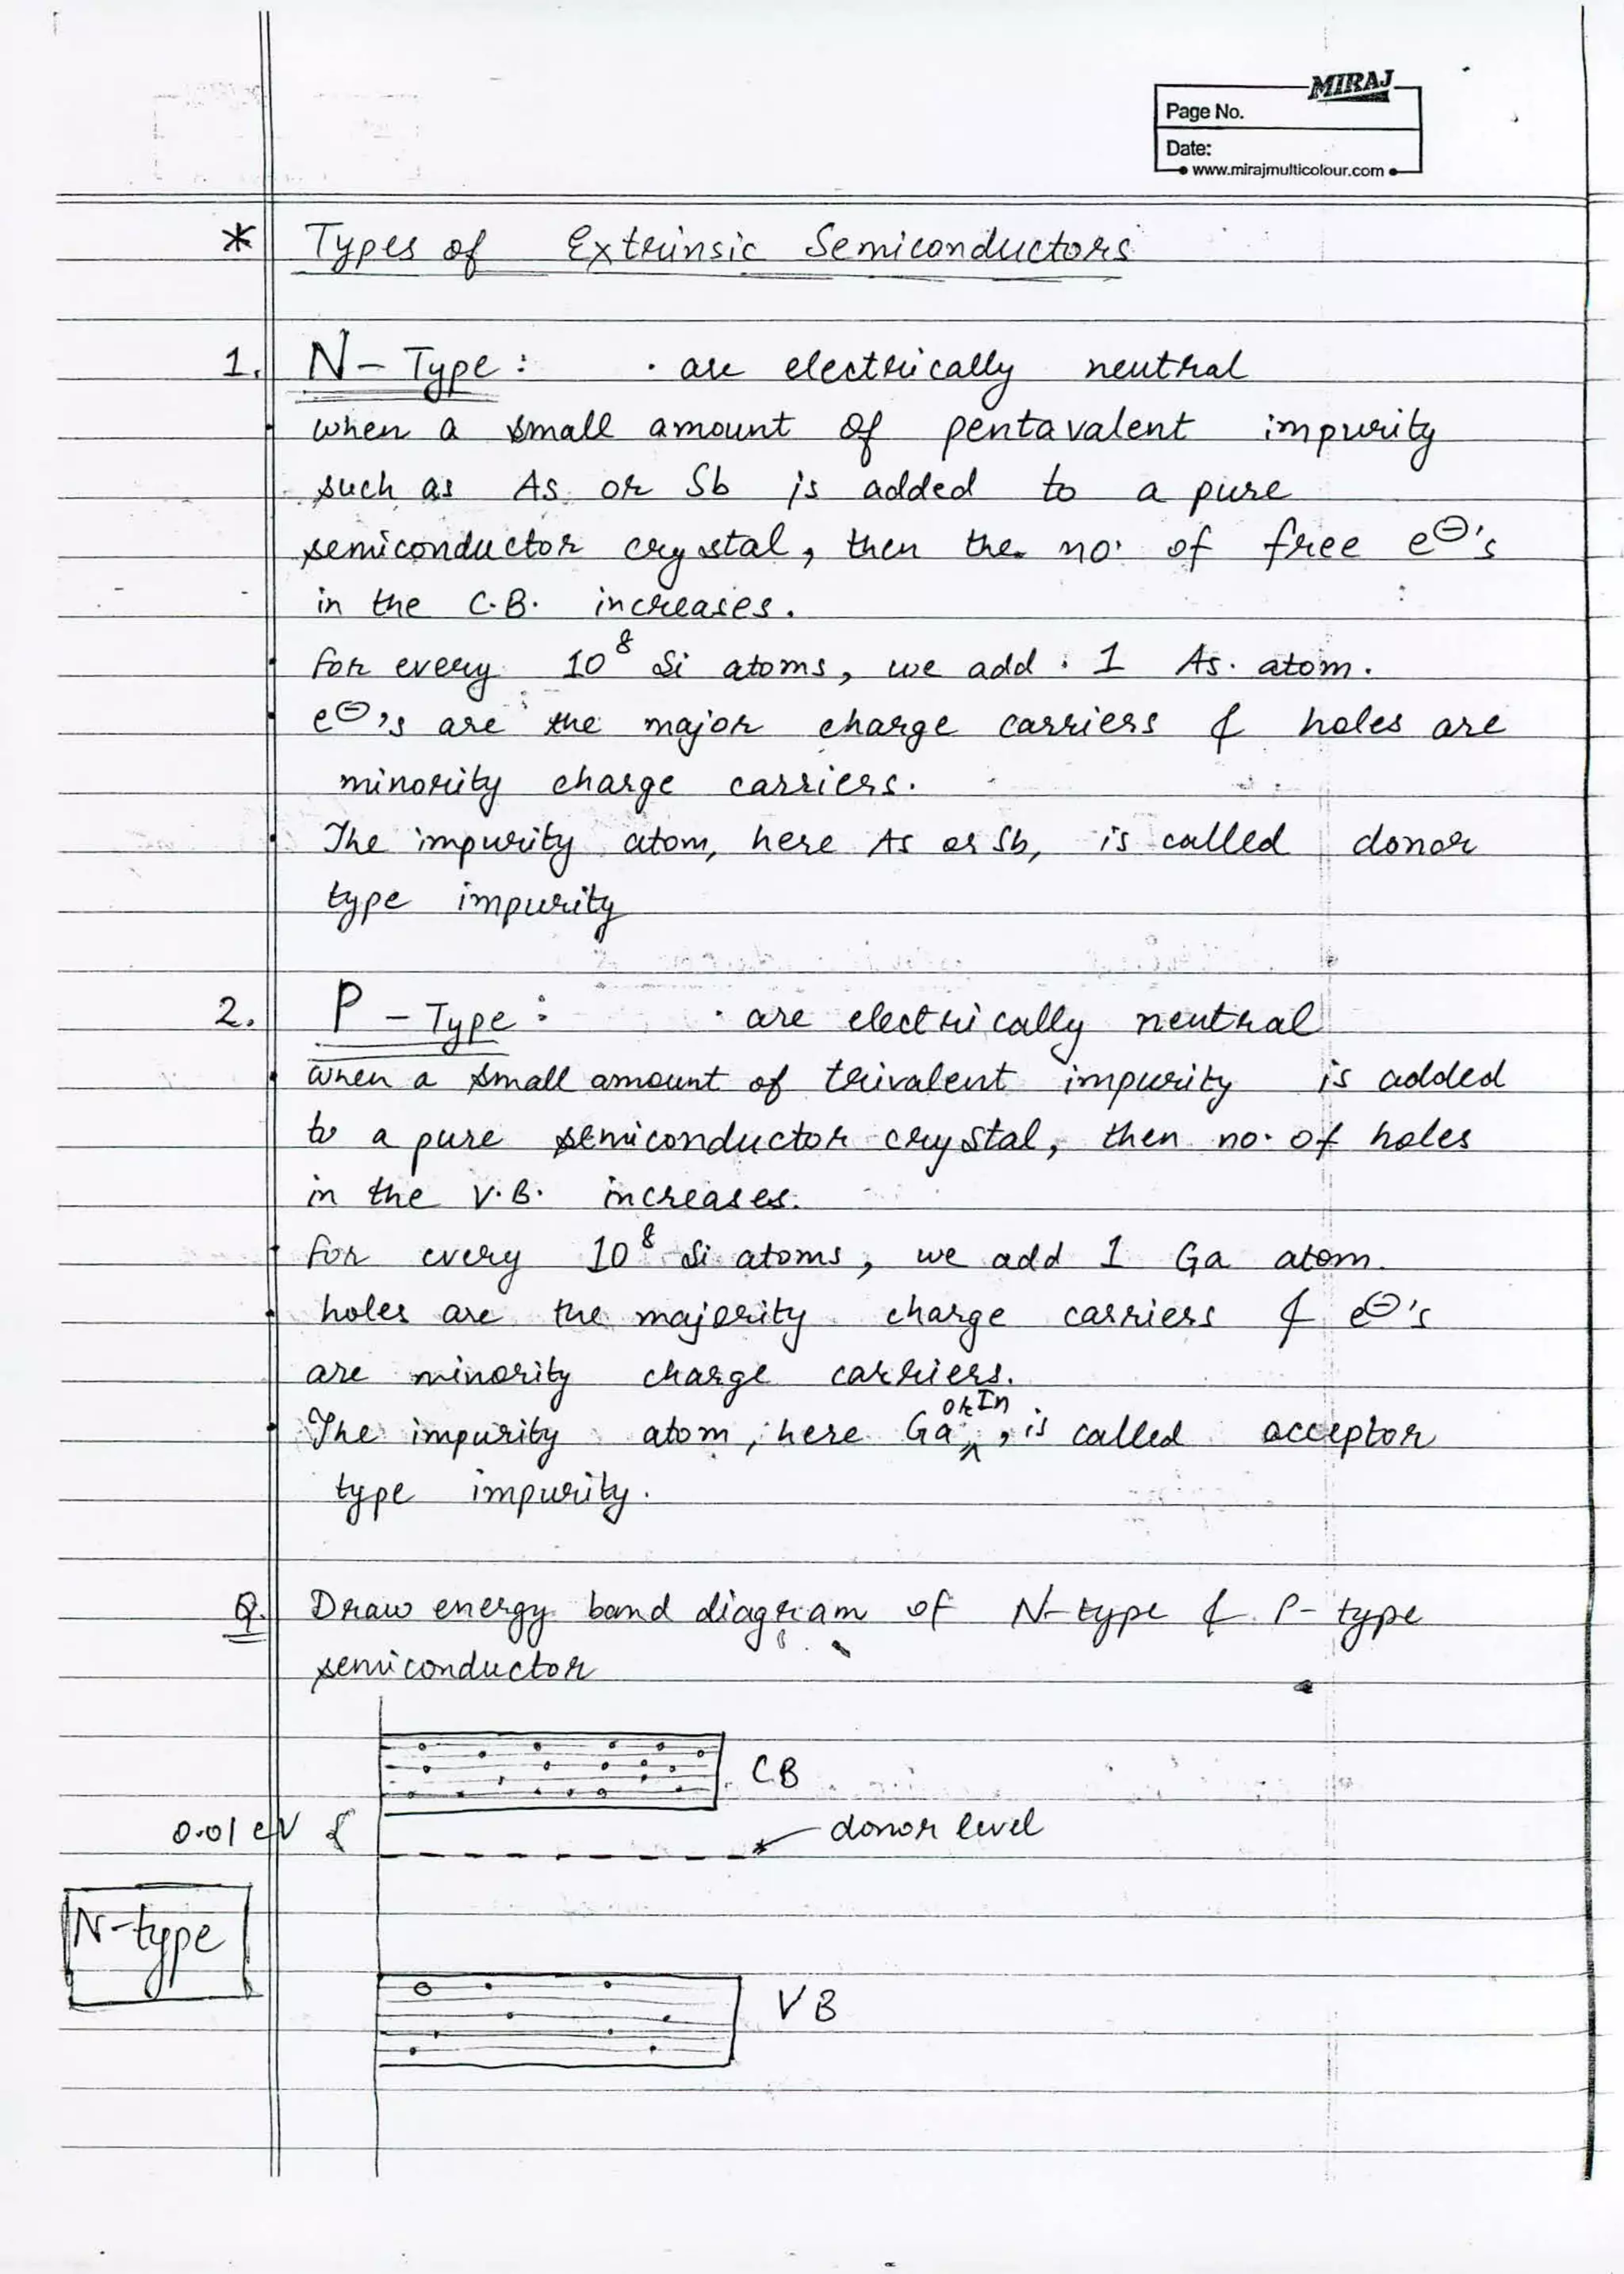 MIRAJ
Page No.
Date:
www.mirajmulticolour.com
* Types of Extrinsic Semiconductors
1. N - Type : · are electrically neutral
· when a small amount of pentavalent impurity
such as As or Sb is added to a pure
semiconductor crystal, then the no. of free e⊖'s
in the C.B. increases.
· for every 10⁸ Si atoms, we add 1 As. atom.
· e⊖'s are the major charge carriers & holes are
minority charge carriers.
· The impurity atom, here As or Sb, is called donor
type impurity
2. P - Type : · are electrically neutral
· when a small amount of trivalent impurity is added
to a pure semiconductor crystal, then no. of holes
in the V.B. increases.
· for every 10⁸ Si atoms, we add 1 Ga atom.
· holes are the majority charge carriers & e⊖'s
are minority charge carriers.
· The impurity atom, here Ga or In, is called acceptor
type impurity.
Q. Draw energy band diagram of N-type & P-type
semiconductor
CB
0.01 eV {
donor level
N-type
VB